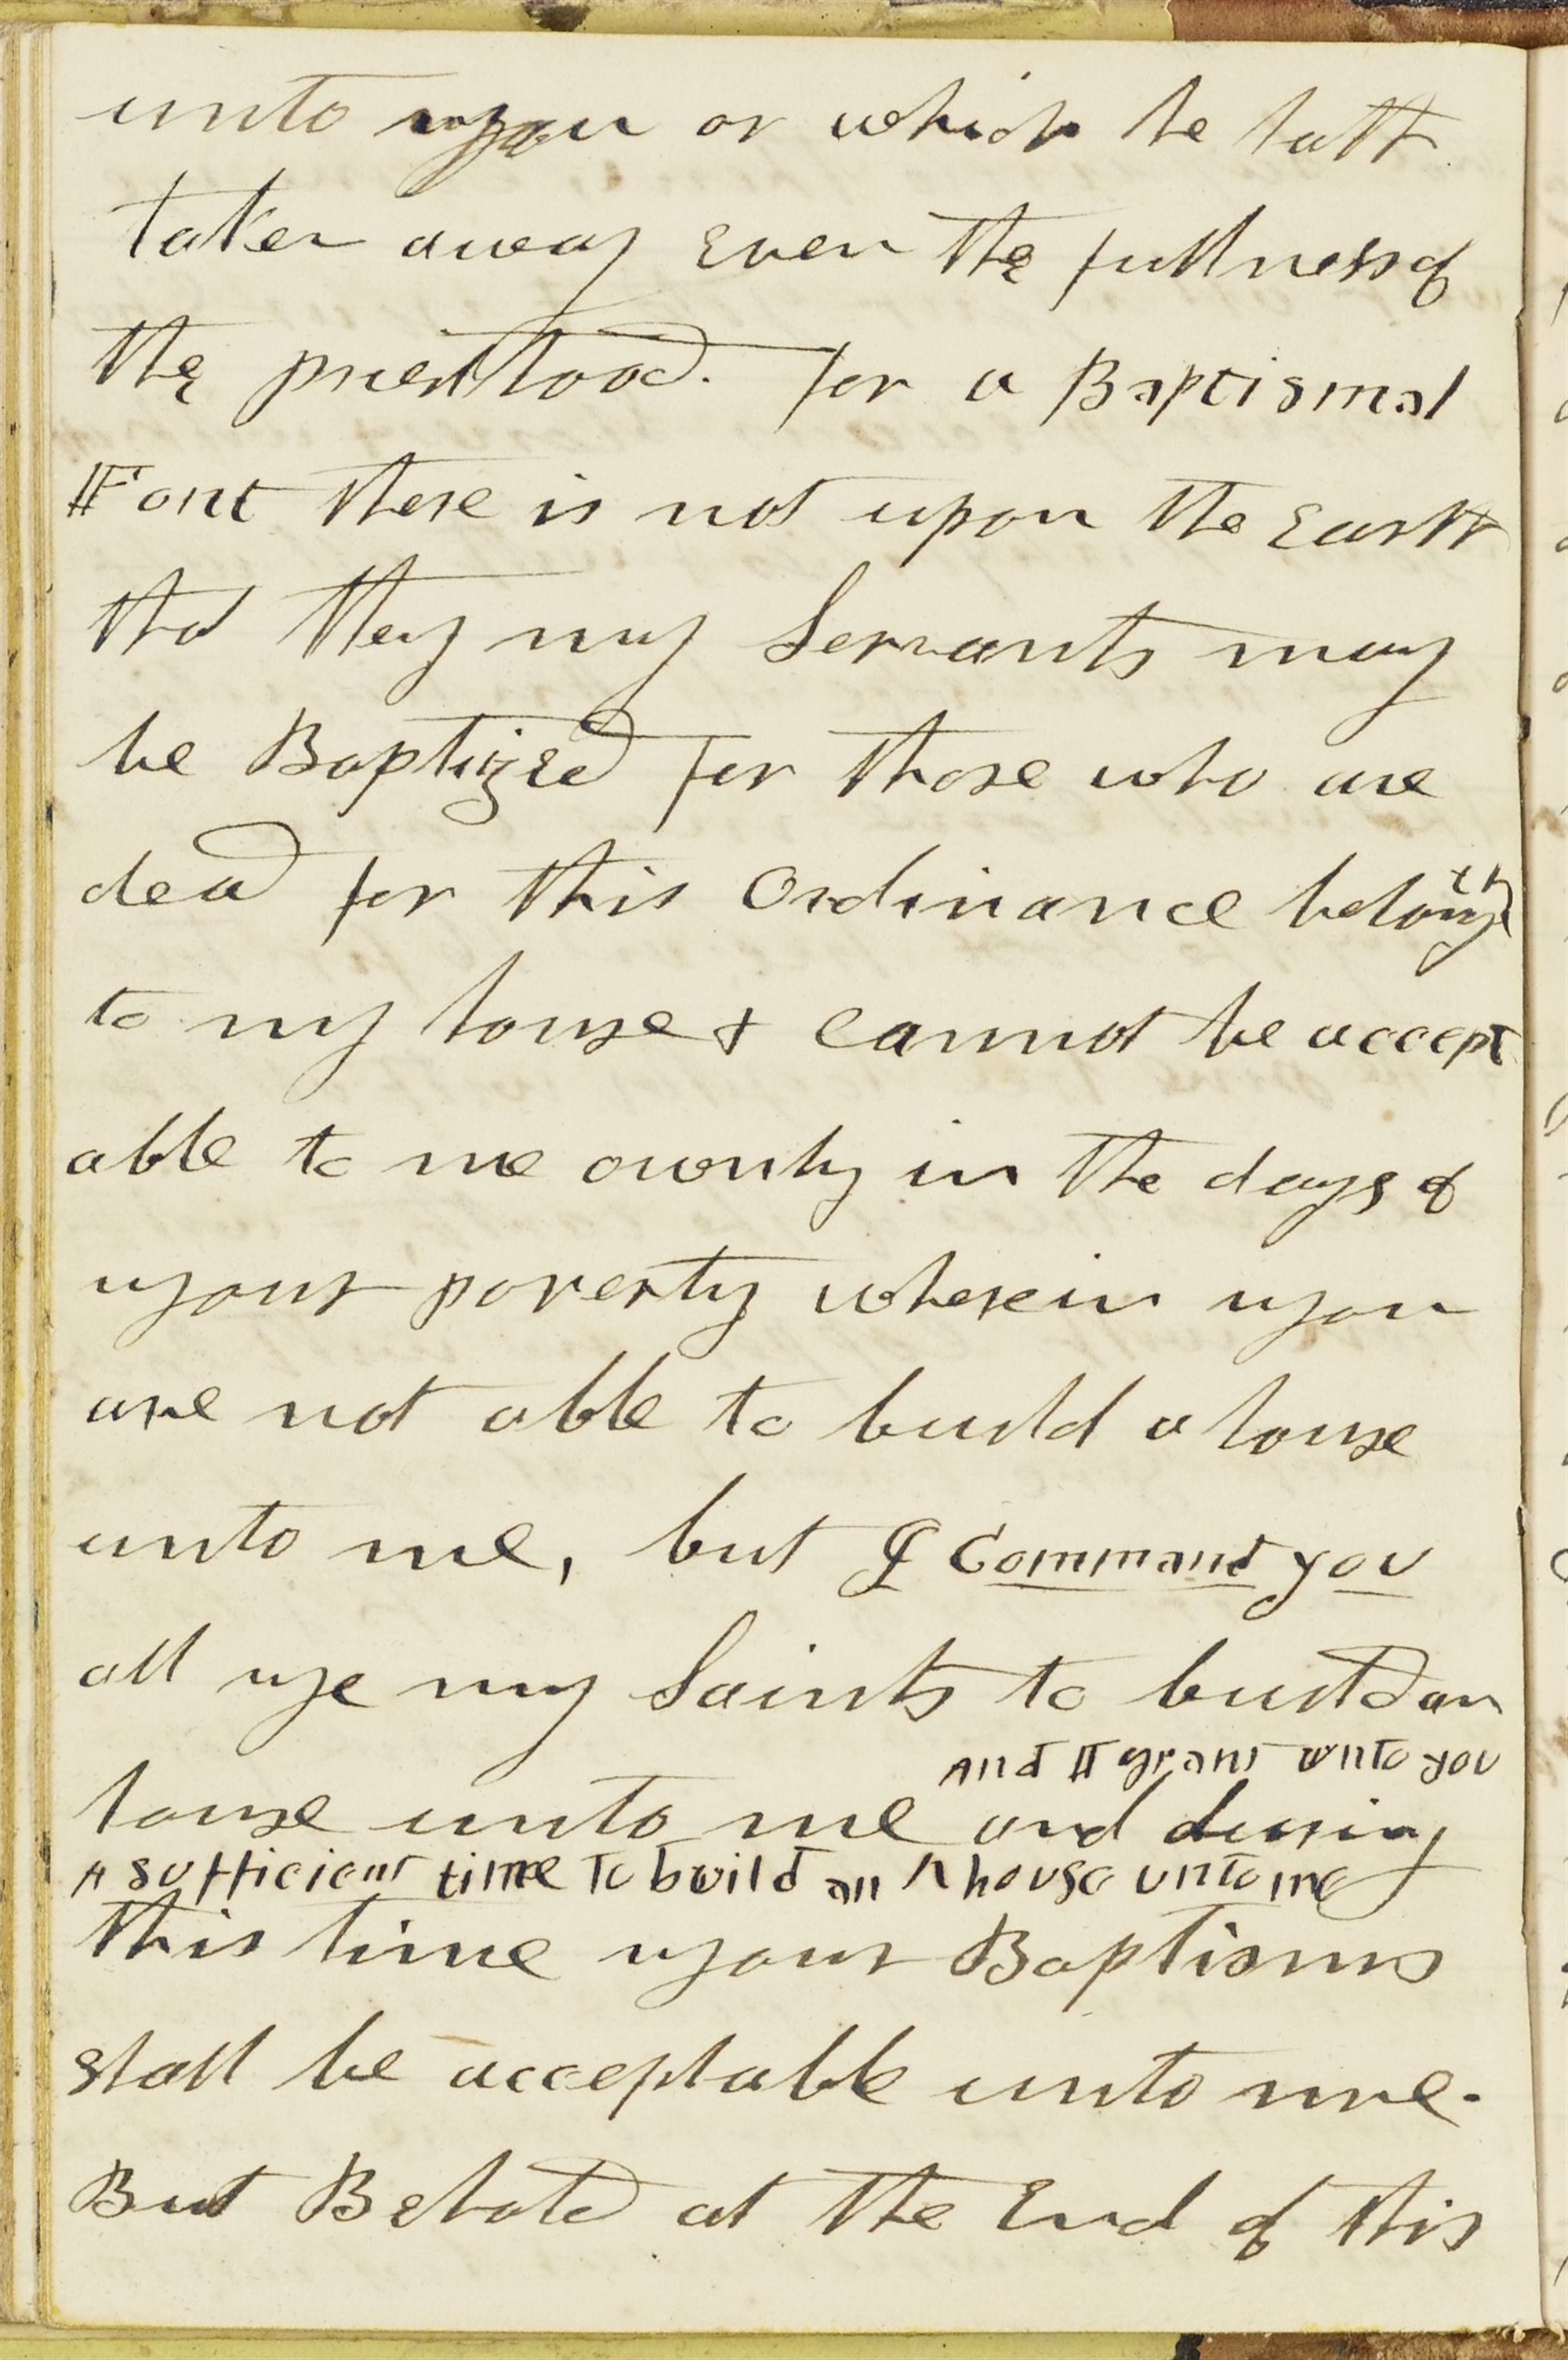 unto you or which he hath
taken away even the fullness of
the priesthood. for a Baptismal
Font there is not upon the Earth
that they my Servants may
be Baptized for those who are
dead for this Ordinance belongeth
to my house & cannot be accept
able to me ownly in the days of
your poverty wherein you
are not able to build a house
unto me, but I Command you
all ye my Saints to build an
and I grant unto you
house unto me and during
A sufficient time to build an house unto me
this time your Baptisms
shall be acceptable unto me.
But Behold at the End of this